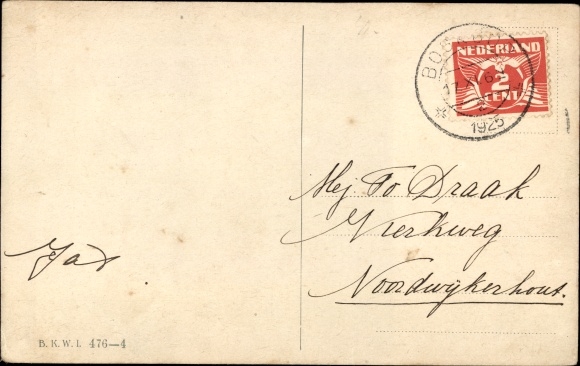 NEDERLAND
2
CENT
1925
Mej. To Draak
Kerkweg
Noordwijkerhout.
B. K. W. I. 476—4